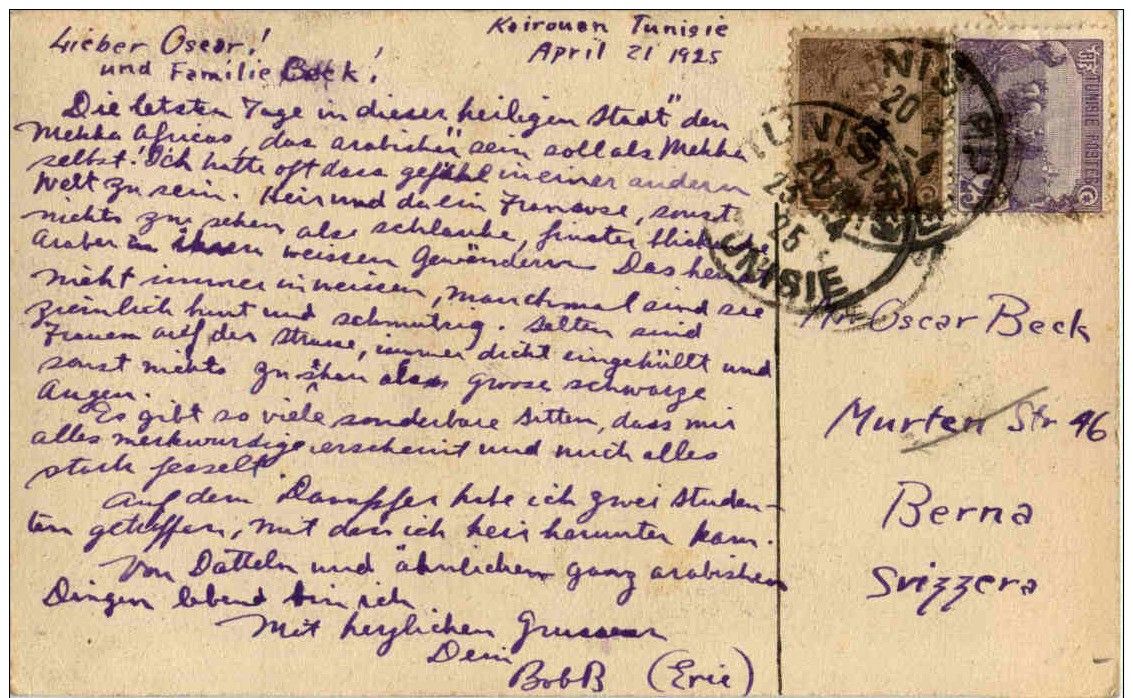 Kairouan Tunisie
April 21 1925
Lieber Oscar!
und Familie Beck!
Die letzten Tage in dieser heiligen Stadt" den
Mekka Africas, das arabisher sein soll als Mekka
selbst! Ich hatte oft dass gefühl in einer andern
Welt zu sein. Heir und da ein Franzose, sonst
nichts zu sehen als schlanke, finster
Araber in ihren weissen Gewändern Das
nicht immer in weissen, manchmal sind sie
ziemlich bunt und schmutzig. Selten sind
Frauen auf der Strasse, immer dicht eingehüllt und
sonst nichts zu sehen als grosse schwarze
Augen.
Es gibt so viele sonderbare Sitten, dass mir
alles merkwurdige erscheint und mich alles
stark fesselt.
Auf dem Dampfer habe ich zwei Studen-
ten getroffen, mit den ich heir herunter kam.
Von Datteln und ähnlichen ganz arabishen
Dingen lebend bin ich
Mit herzlichen Grussen
Dein
BobB (Eric)
Mr Oscar Beck
Murten Str 46
Berna
Svizzera
TUNIS
20
25
TUNISIE
TUNISIE POSTES
25